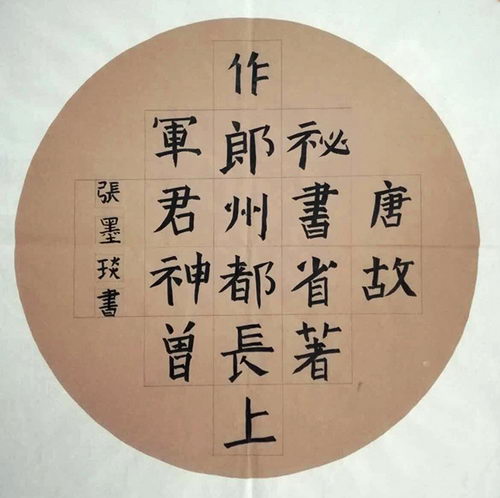 唐故
祕書省著
作郎州都長上
軍君神曾
張墨琰書